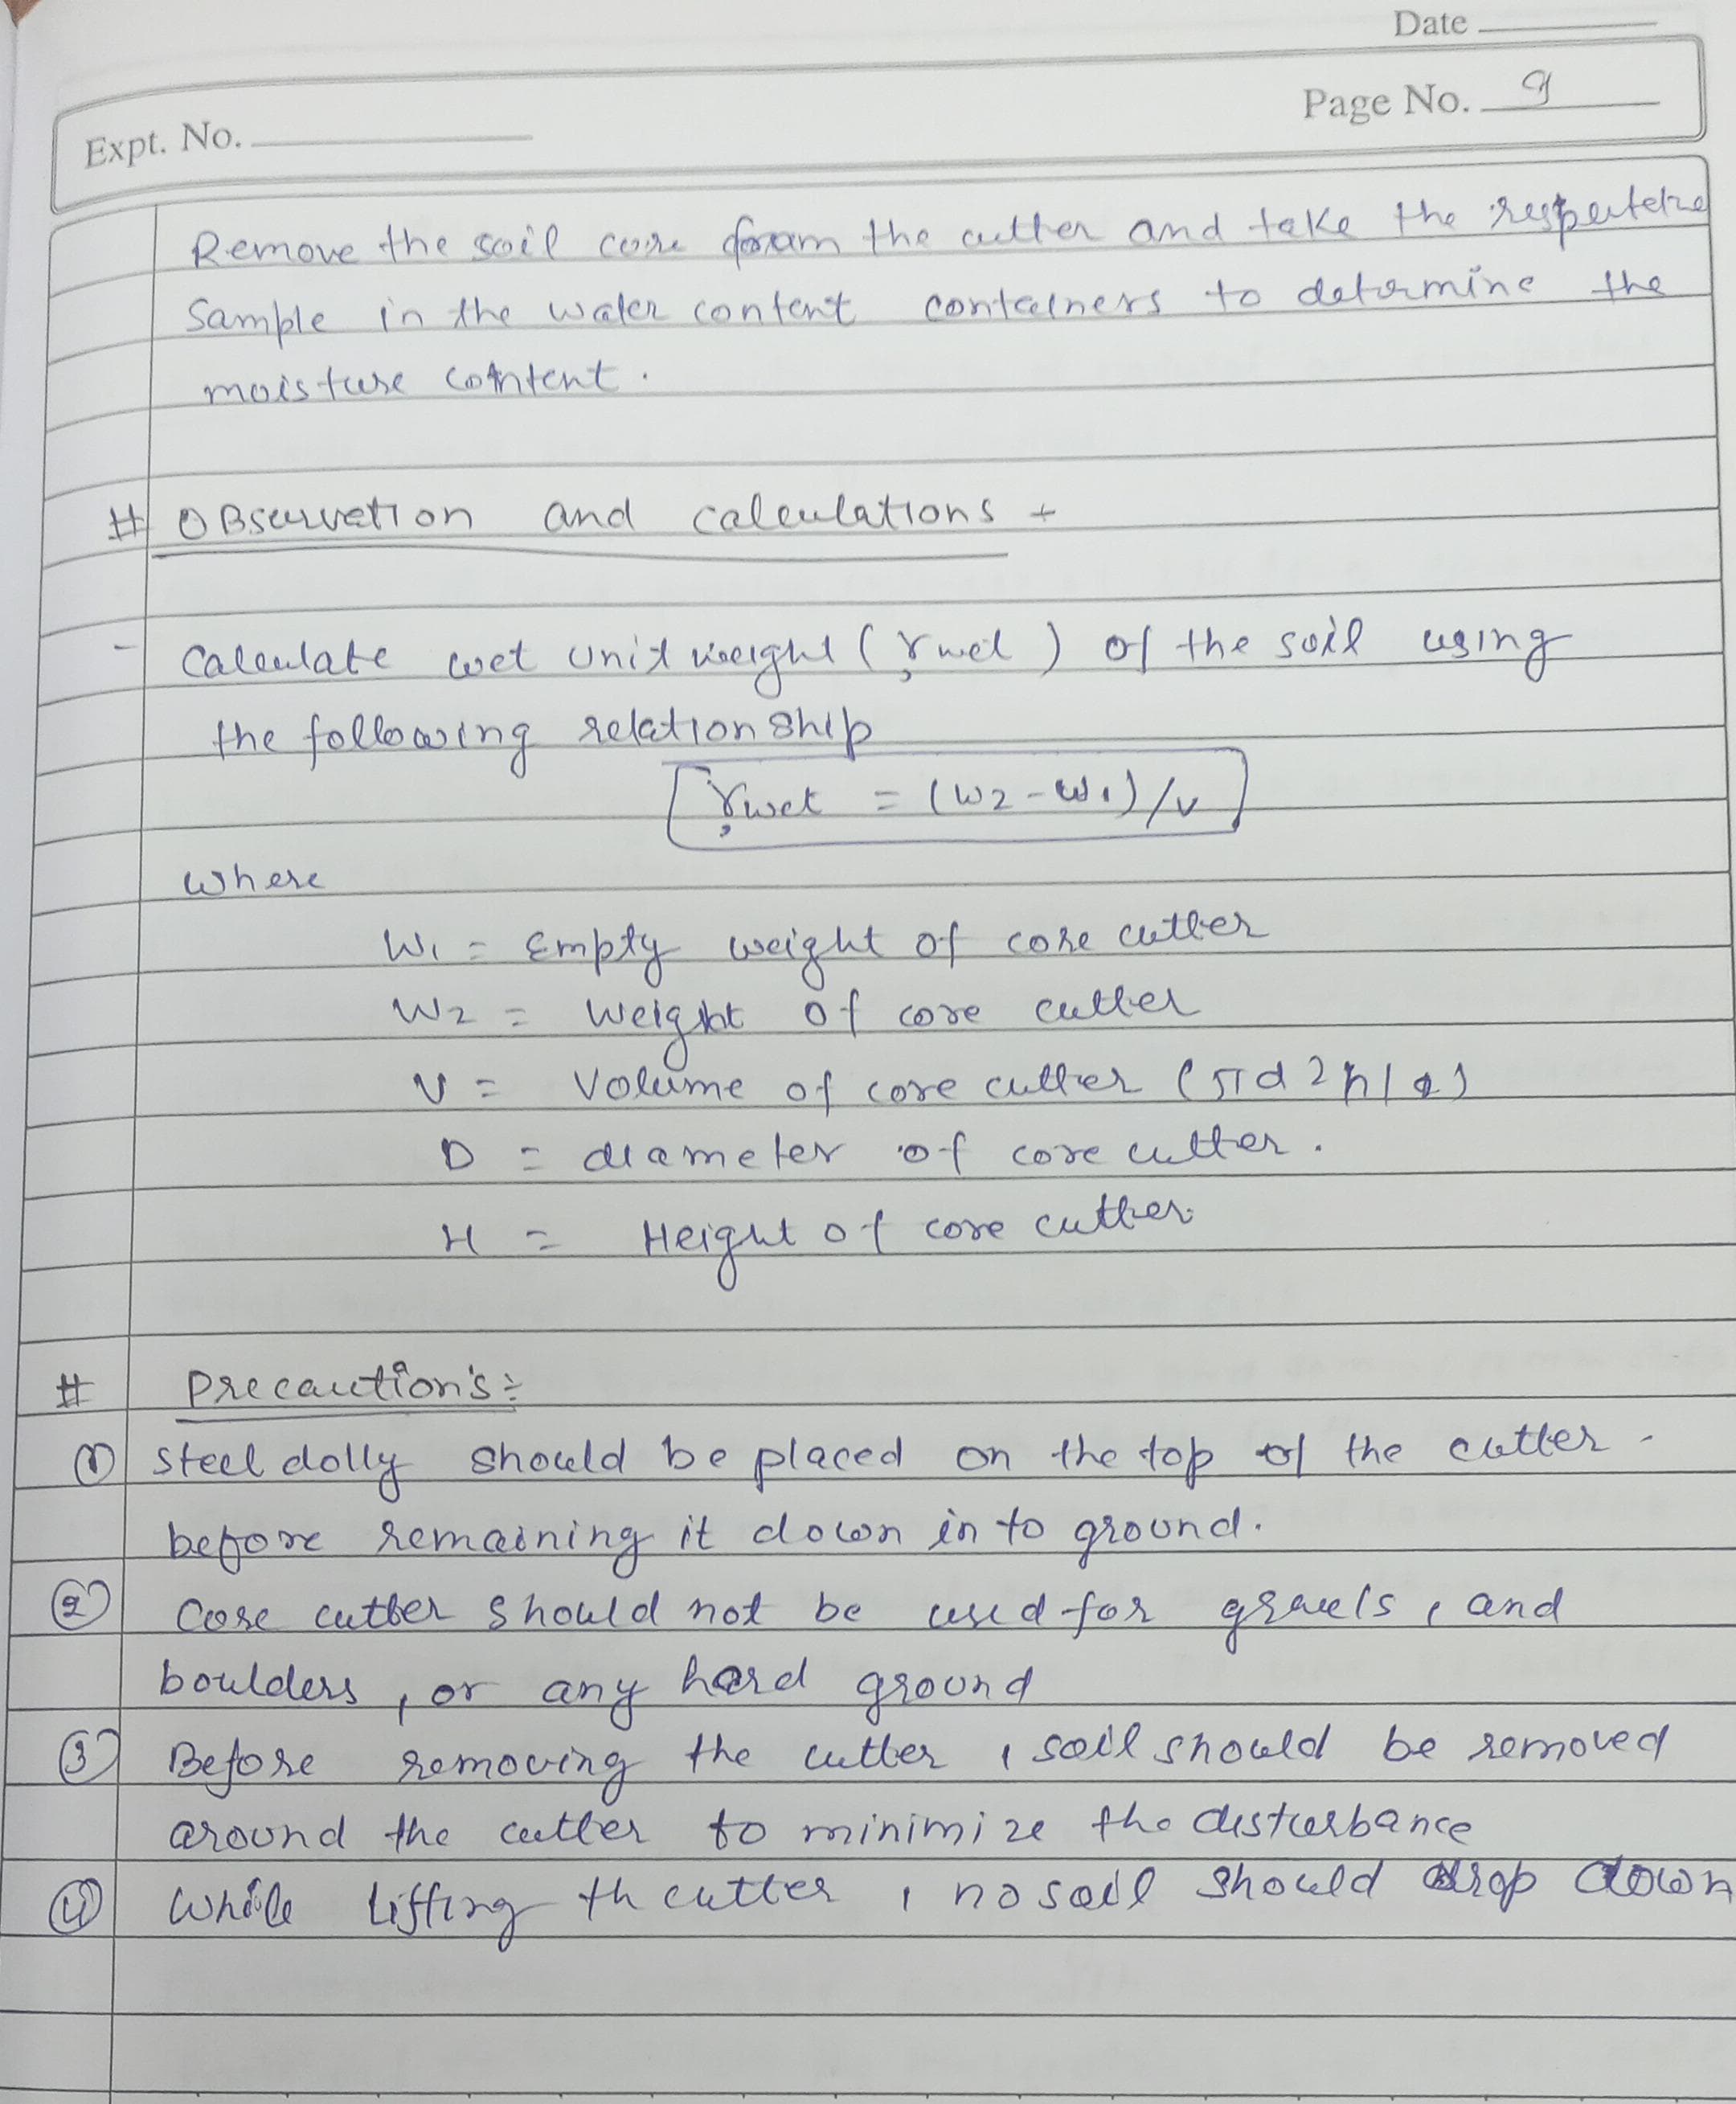 Date
Page No. 9
Expt. No.
Remove the soil core from the cutter and take the
Sample in the water content containers to determine the
moisture content.
# OBservation and calculations
- Calculate wet unit weight (γwet) of the soil using
the following relationship
γwet = (W2 - W1)/v
where
W1 = Empty weight of core cutter
W2 = Weight of core cutter
V = Volume of core cutter (πd2h/4)
D = diameter of core cutter.
H = Height of core cutter
# Precaution's:
① steel dolly should be placed on the top of the cutter
before remaining it down in to ground.
② Core cutter should not be used for gravels, and
boulders, or any hard ground
③ Before removing the cutter, soil should be removed
around the cutter to minimize the disturbance
④ While lifting th cutter, no soil should drop down